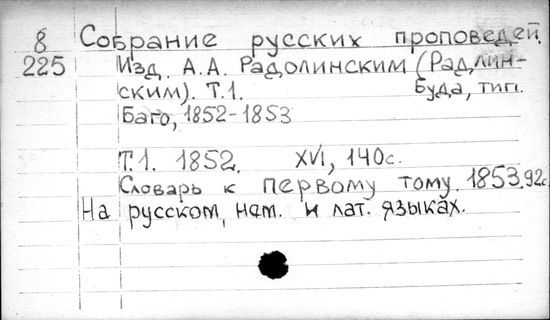 8 Собрание русских проповедей.
225 Изд. А.А. Радолинским (Радлин-
ским). Т.1. Буда, тип.
Баго, 1852-1853
Т.1. 1852. XVI, 140с.
Словарь к первому тому. 1853. 92с.
На русском, нем. и лат. языках.